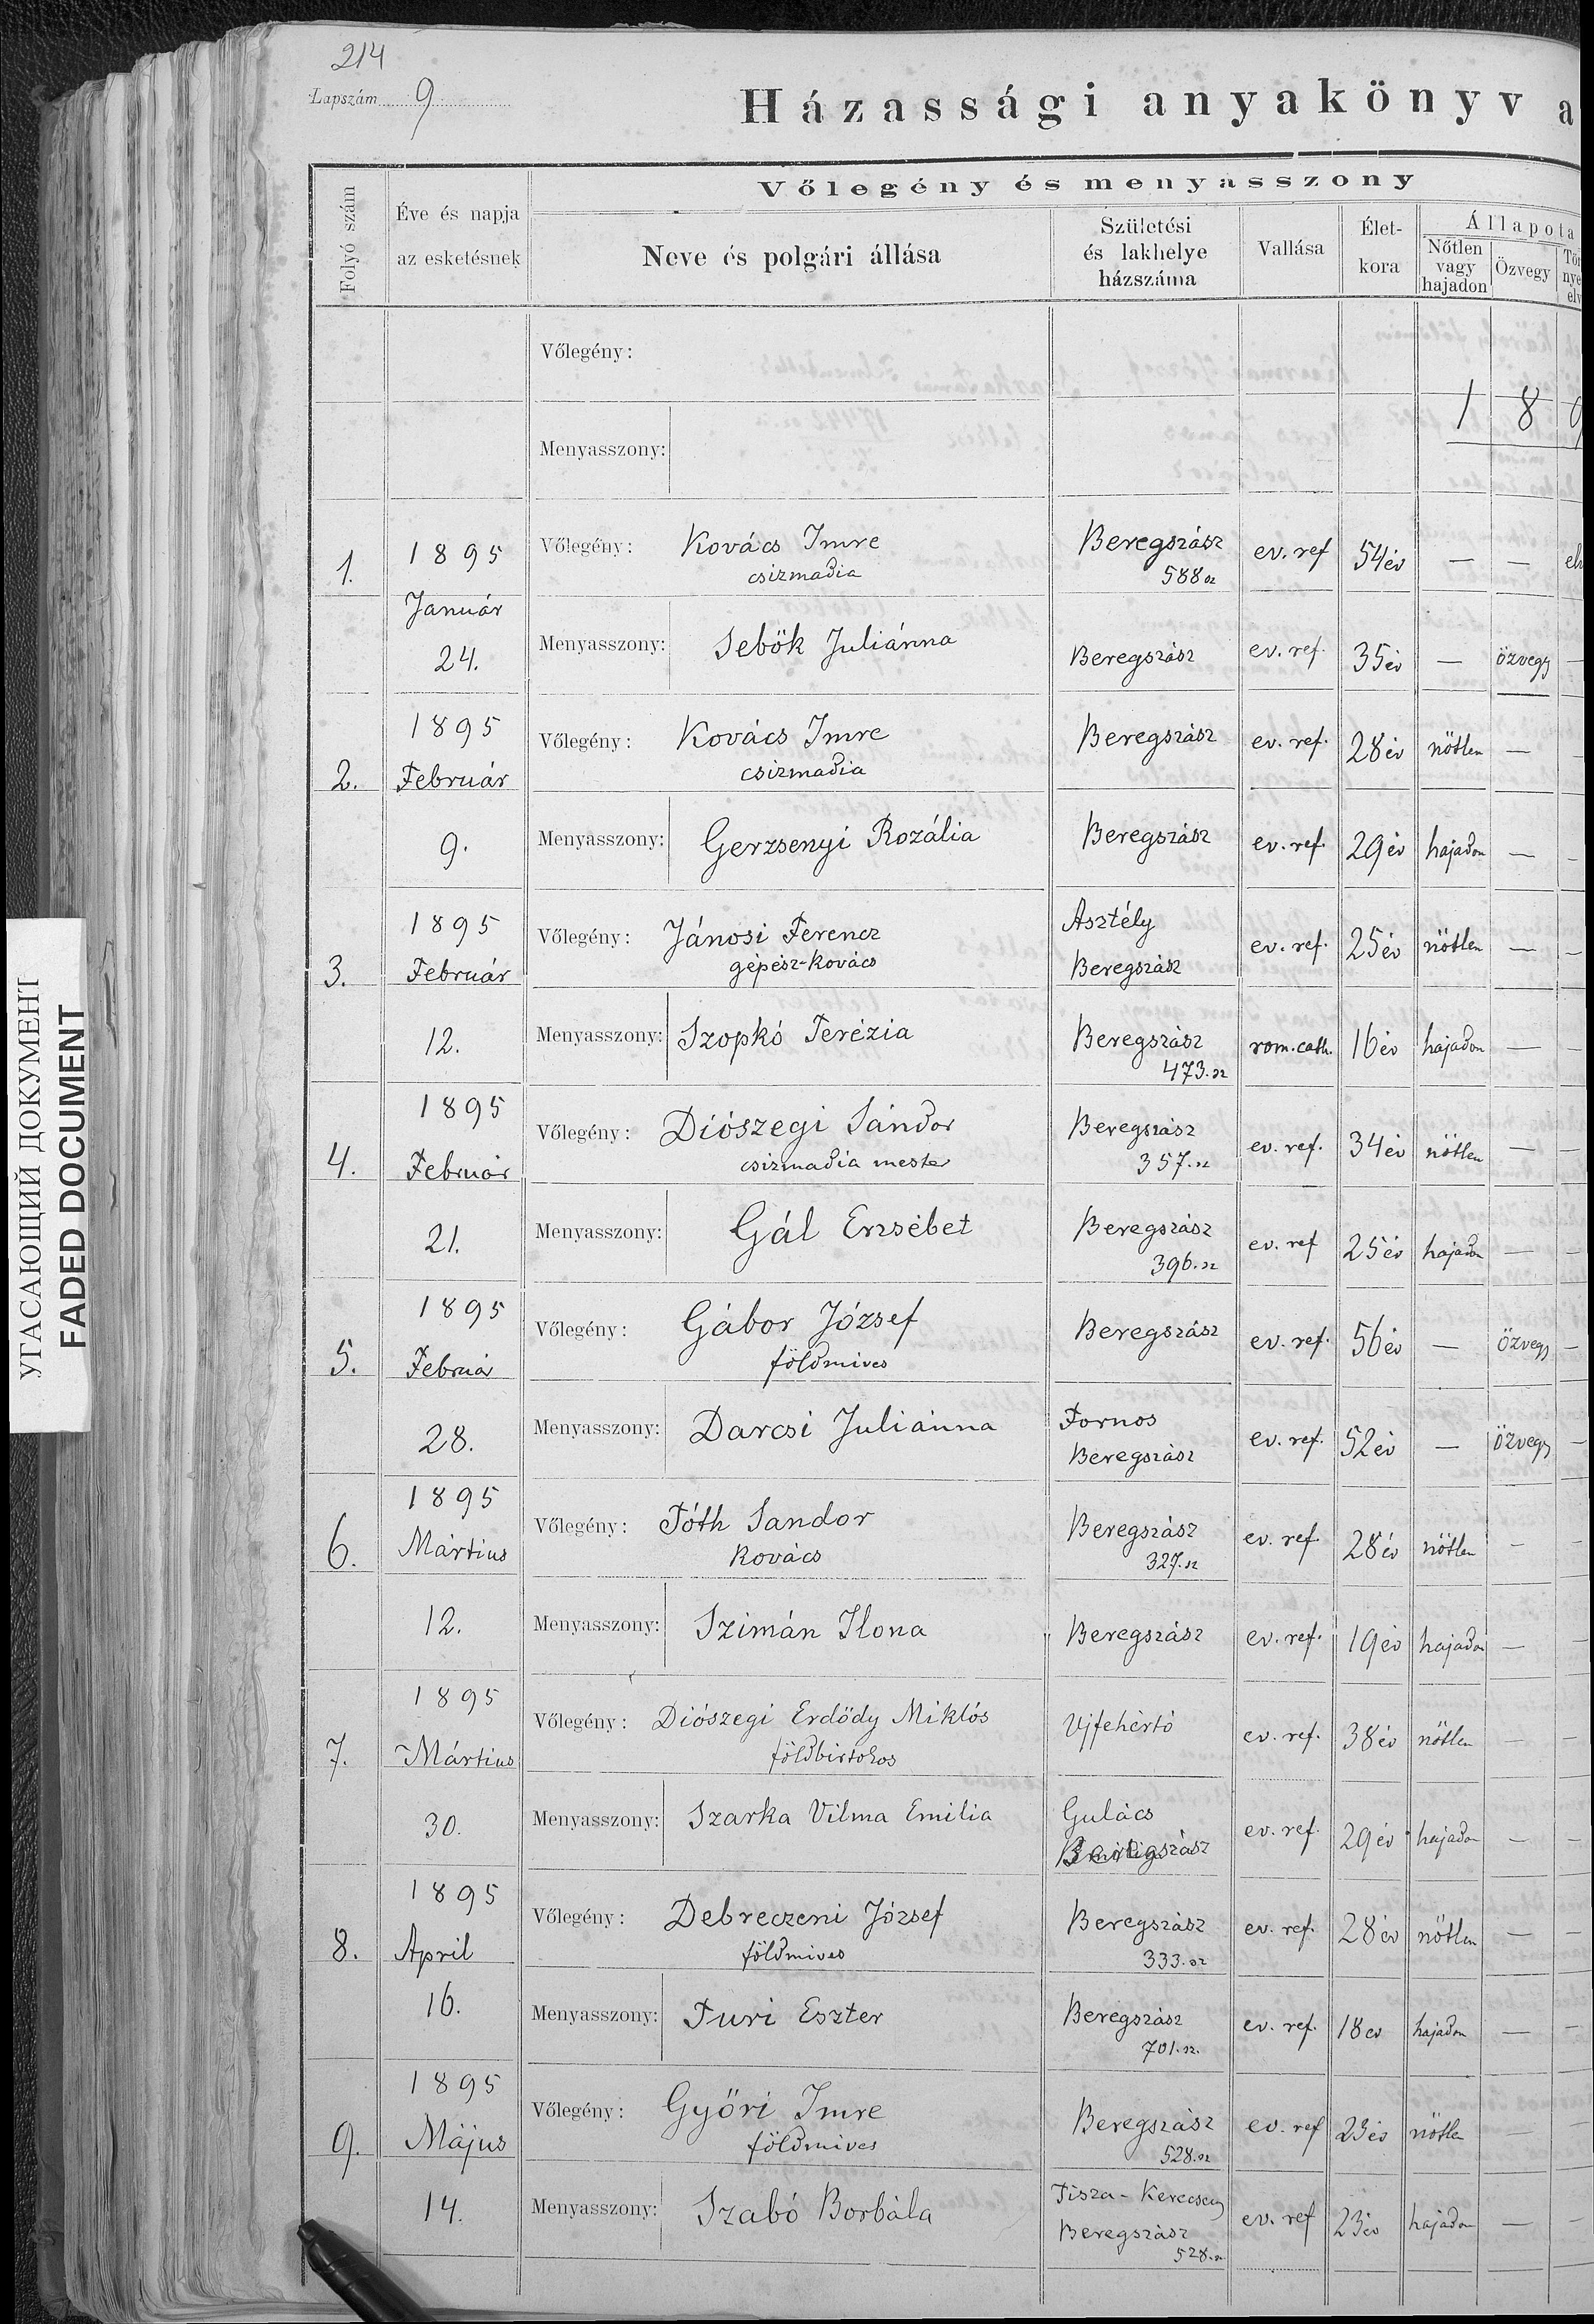 214
Lapszám 9
Házassági anyakönyv a
Folyó szám
Éve és napja
az esketésnek
Vőlegény és menyasszony
Neve és polgári állása
Születési
és lakhelye
házszáma
Vallása
Élet-
kora
Állapota
Nőtlen
vagy
hajadon
Özvegy
Vőlegény:
Menyasszony:
1 8 9
1. 1895 Vőlegény: Kovács Imre Beregszász ev. ref 54 év — —
csizmadia 588 sz
Január
24. Menyasszony: Sebők Juliánna Beregszász ev. ref. 35 év — özvegy —
1895 Vőlegény: Kovács Imre Beregszász ev. ref. 28 év nőtlen — -
2. Február csizmadia
9. Menyasszony: Gerzsenyi Rozália Beregszász ev. ref. 29 év hajadon — -
1895 Vőlegény: Jánosi Ferencz Asztély ev. ref. 25 év nőtlen — -
3. Február gépész-kovács Beregszász
12. Menyasszony: Szopkó Terézia Beregszász rom. cath. 16 év hajadon — -
473. sz
1895 Vőlegény: Diószegi Sándor Beregszász ev. ref. 34 év nőtlen — -
4. Február csizmadia mester 357. sz
21. Menyasszony: Gál Erzsébet Beregszász ev. ref 25 év hajadon — -
396. sz
1895 Vőlegény: Gábor József Beregszász ev. ref. 56 év — özvegy -
5. Február földmives
28. Menyasszony: Darcsi Juliánna Fornos ev. ref. 52 év — özvegy -
Beregszász
1895 Vőlegény: Tóth Sandor Beregszász ev. ref. 28 év nőtlen - -
6. Mártius kovács 327. sz
12. Menyasszony: Szimán Ilona Beregszász ev. ref. 19 év hajadon — -
1895 Vőlegény: Diószegi Erdődy Miklós Ujfehértó ev. ref. 38 év nőtlen — -
7. Mártius földbirtokos
30. Menyasszony: Szarka Vilma Emilia Gulács ev. ref. 29 év hajadon — -
Beregszász
1895 Vőlegény: Debreczeni József Beregszász ev. ref. 28 év nőtlen — -
8. April földmives 333. sz
16. Menyasszony: Turi Eszter Beregszász ev. ref. 18 év hajadon — -
701. sz.
1895 Vőlegény: Győri Imre Beregszász ev. ref 23 év nőtlen — -
9. Május földmives 528. sz
14. Menyasszony: Szabó Borbála Tisza-Kerecseny ev. ref 23 év hajadon — -
Beregszász
528. sz
УГАСАЮЩИЙ ДОКУМЕНТ
FADED DOCUMENT